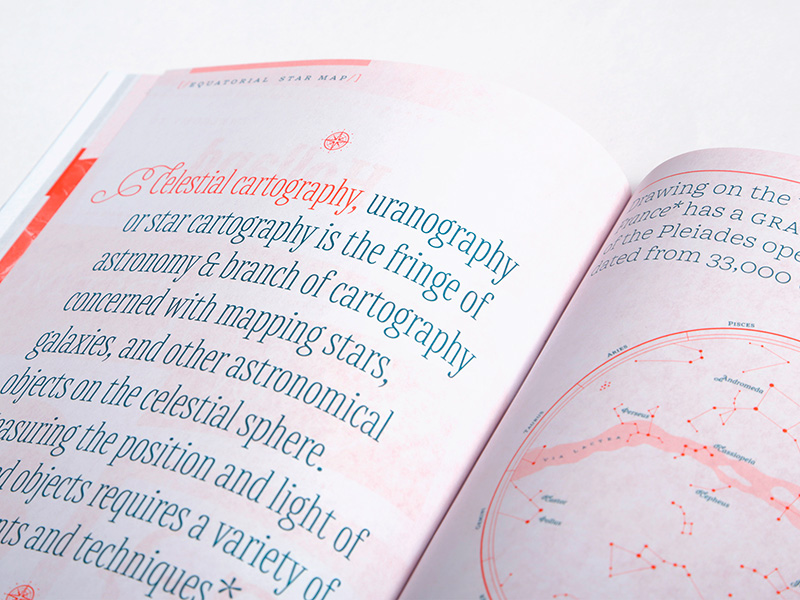 [/EQUATORIAL STAR MAP/]
Celestial cartography, uranography
or star cartography is the fringe of
astronomy & branch of cartography
concerned with mapping stars,
galaxies, and other astronomical
objects on the celestial sphere.
easuring the position and light of
d objects requires a variety of
nts and techniques*
Drawing on the
rance* has a GRA
of the Pleiades ope
dated from 33,000
PISCES
ARIES
TAURUS
Andromeda
Perseus
VIA LACTEA
Cassiopeia
Cepheus